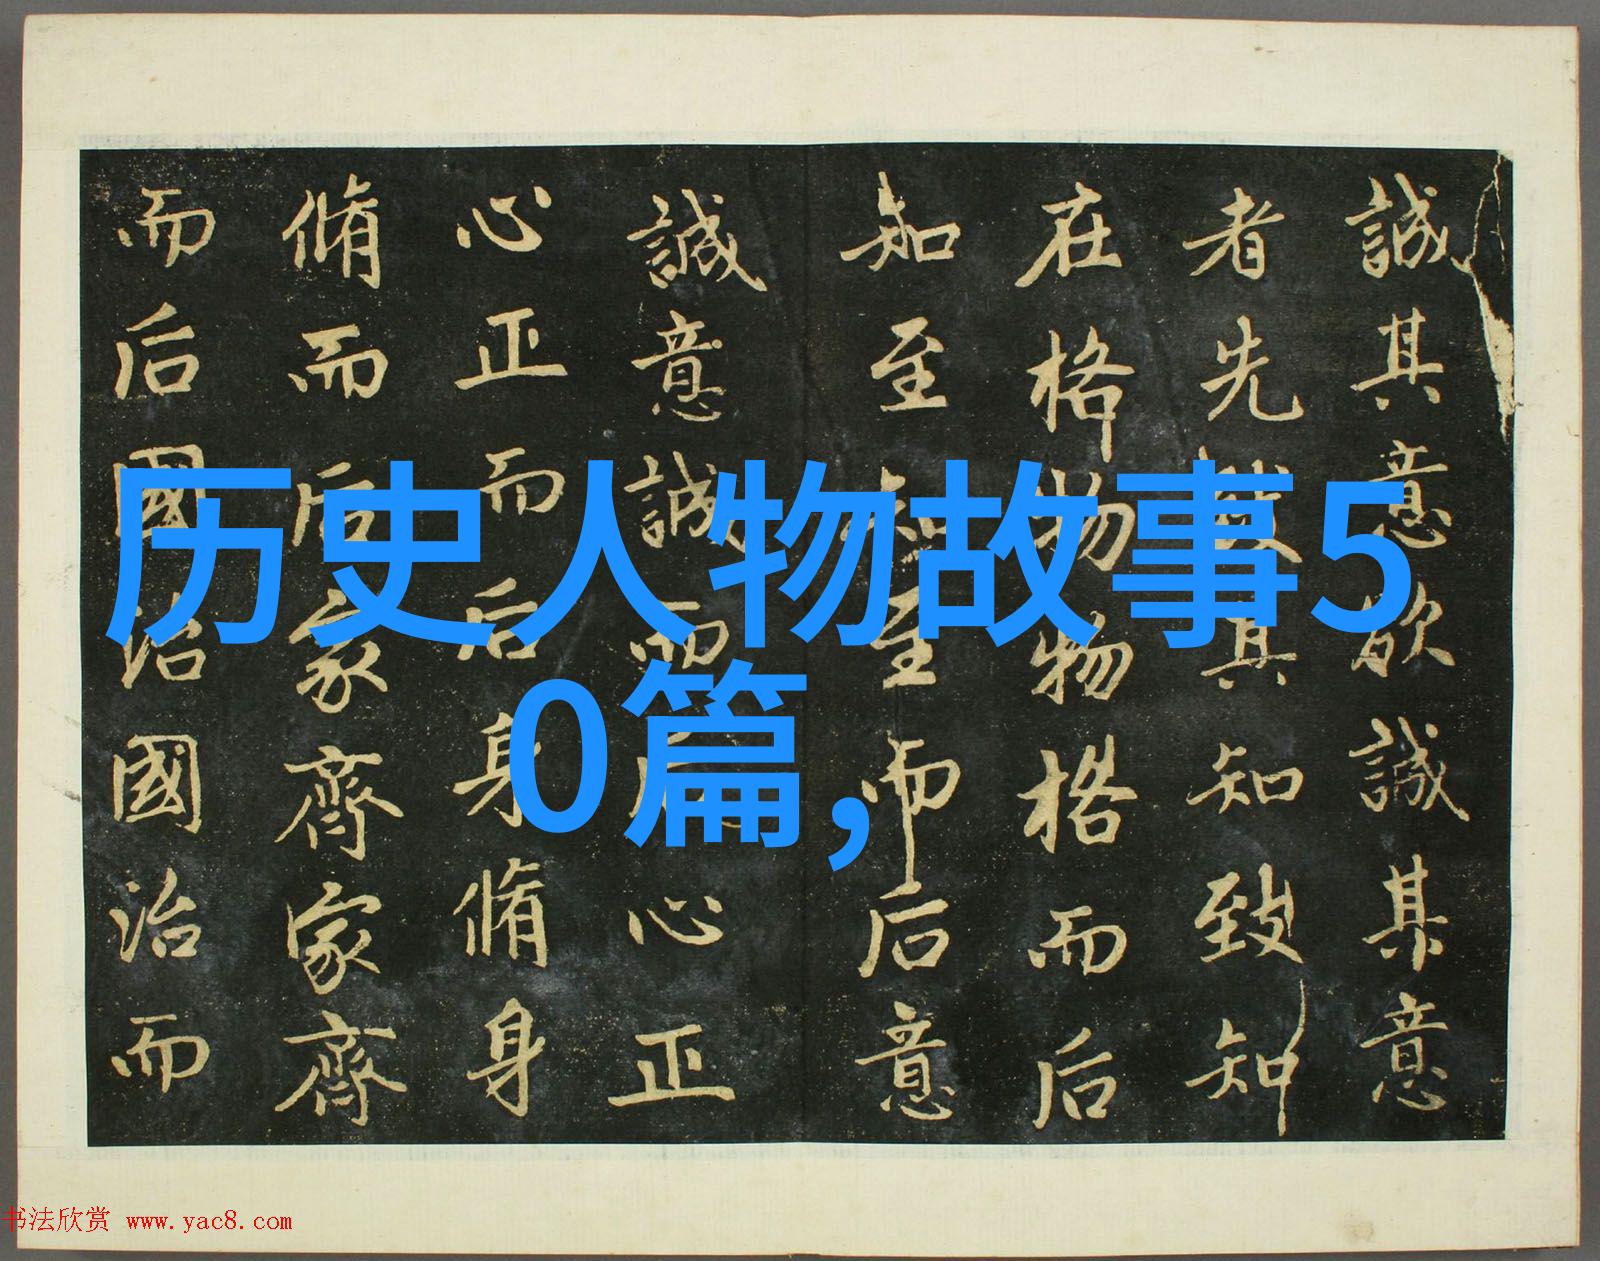 誠其意欲誠其意
者先致其知致知
在格物物格而后
知至知至而后意
誠意誠而后心正
心正而后身脩身
脩而后家齊家齊
而后國治國治而
历史人物故事5
0篇,
书法欣赏 www.yac8.com